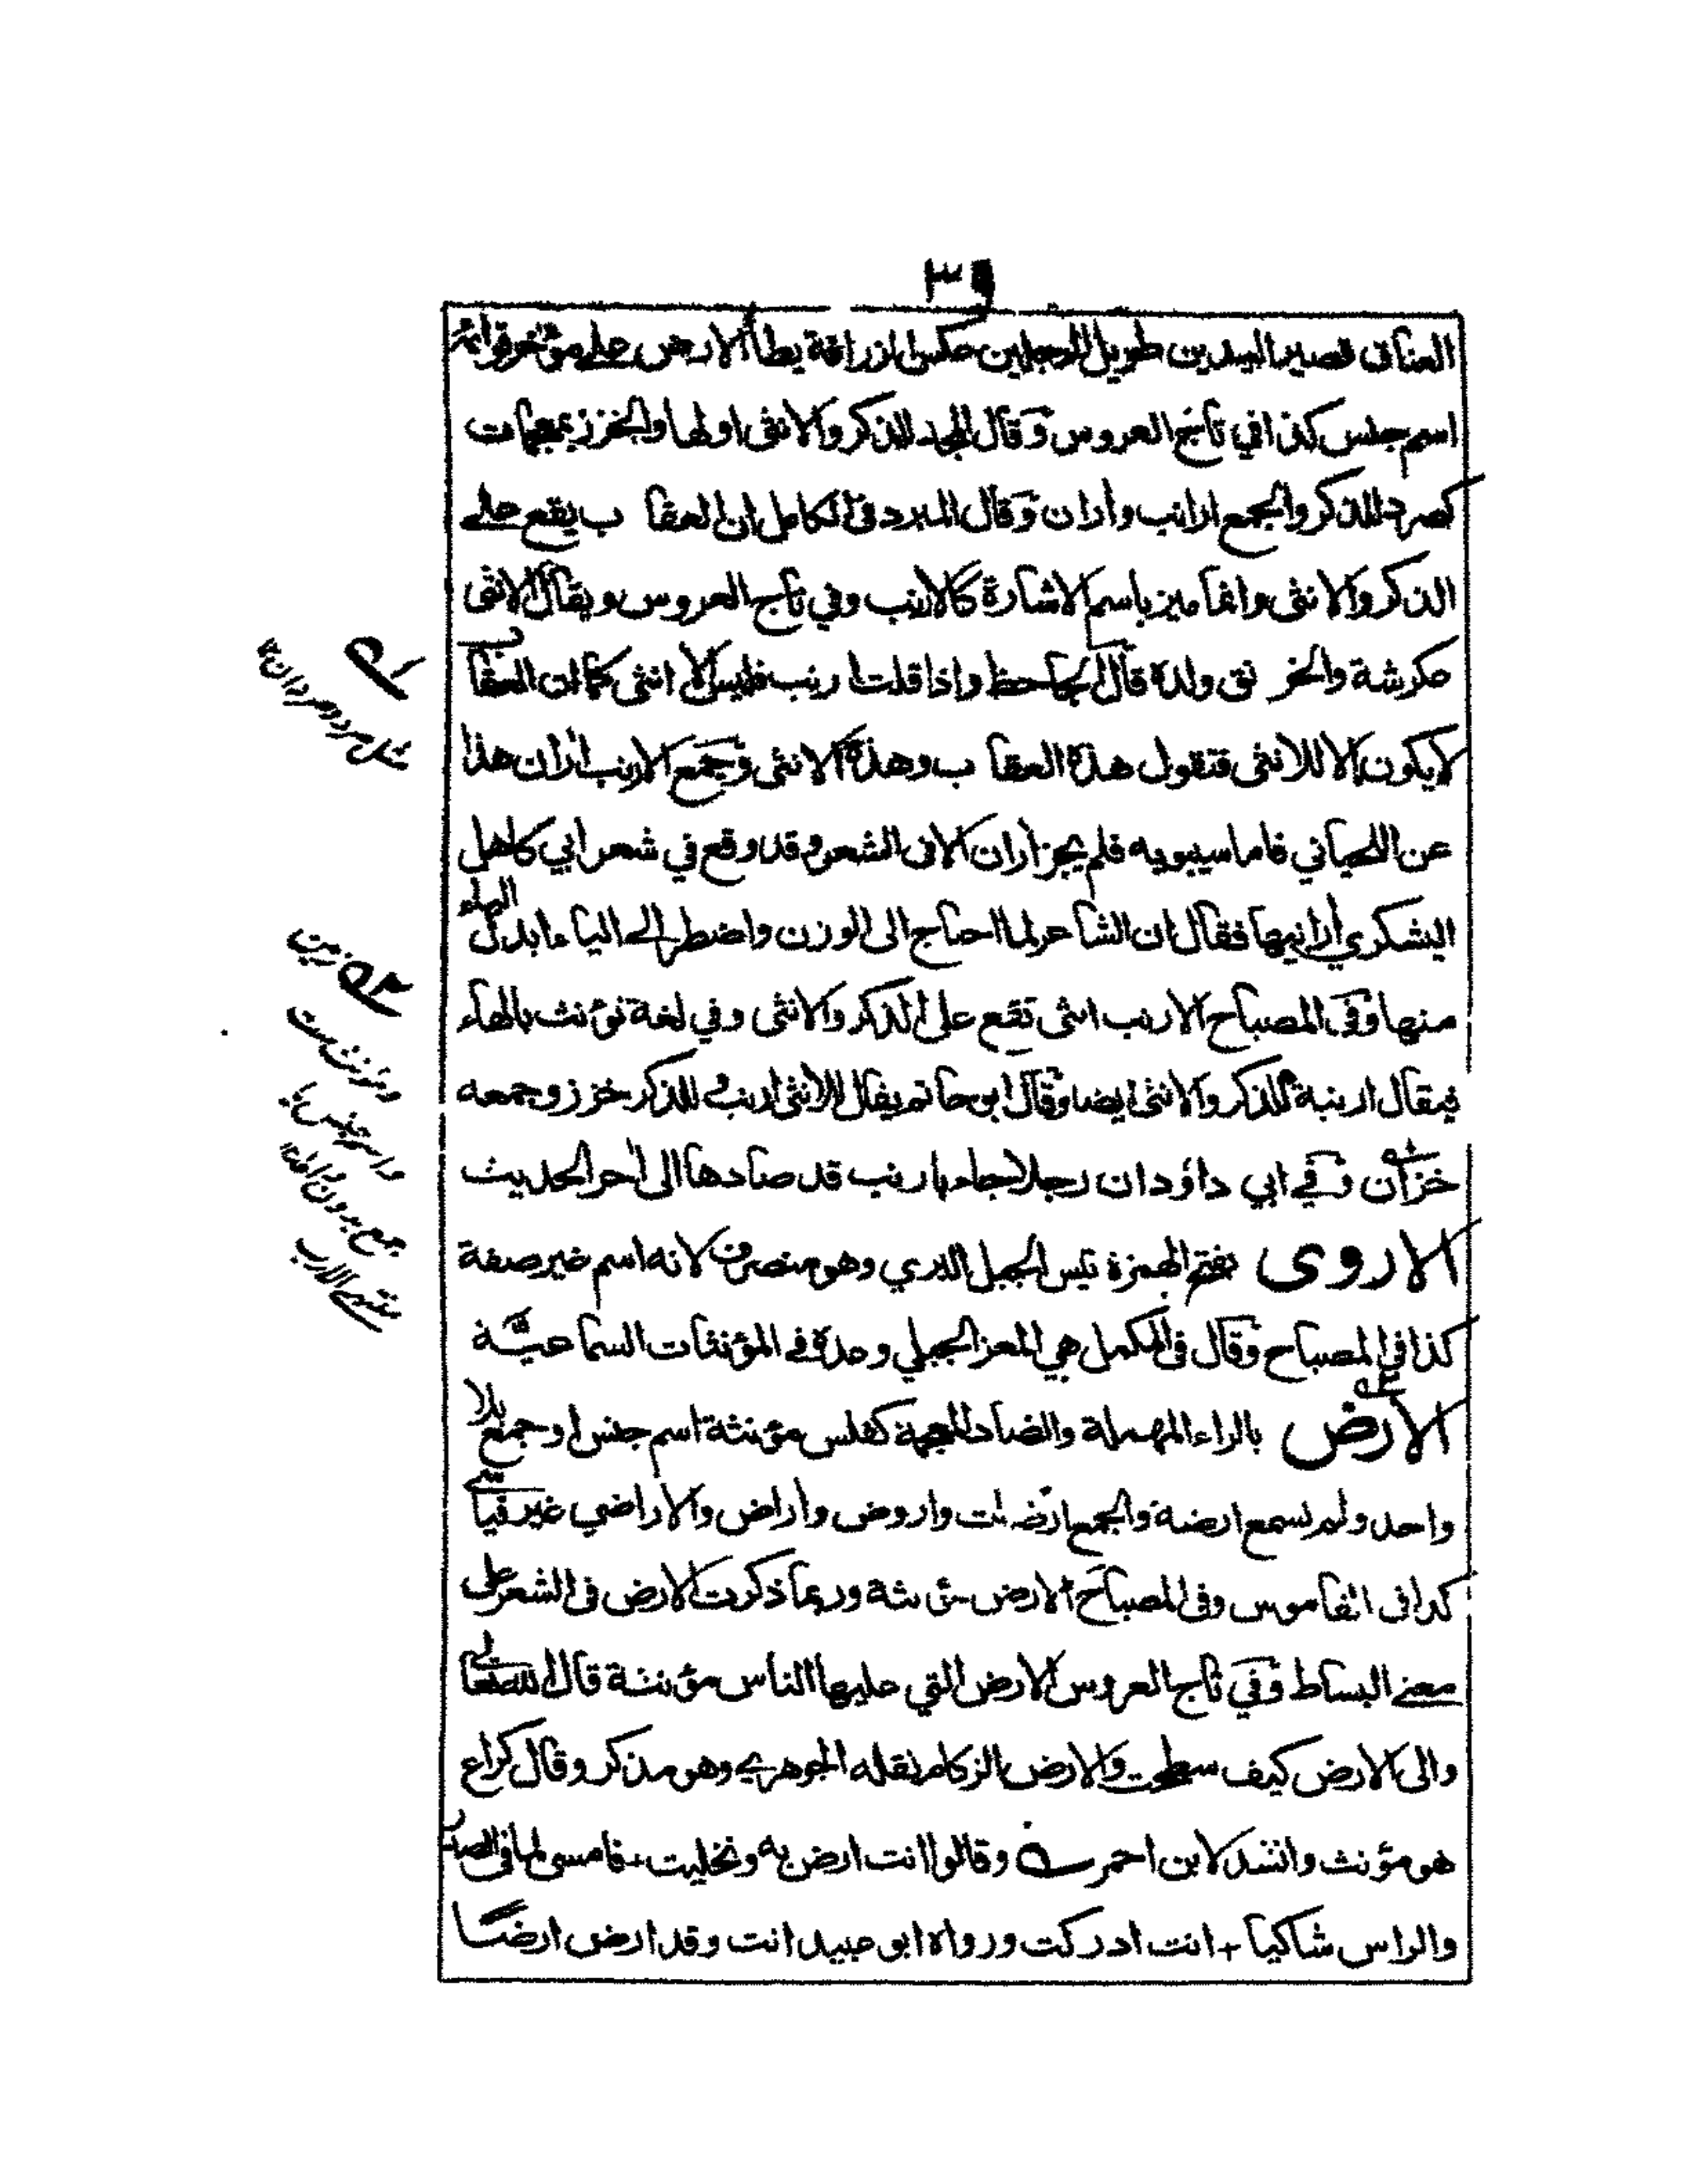 ٣٩
العناق قصير اليدين طويل الرجلين عكس الزرافة يطأ الارض على مؤخر قوائمه
اسم جنس كذا في تاج العروس وقال المجد للذكر والانثى او لها والخزز بمعجمات
كصرد للذكر والجمع ارانب واران وقال المبرد فى الكامل ان العقاب يقع على
الذكر والانثى وانما ميز باسم الاشارة كالارنب وفي تاج العروس ويقال الانثى
عكرشة والخرنق ولده قال الجاحظ واذا قلت ارنب فليس الا انثى كما ان العقاب
لا يكون الا للانثى فتقول هذه العقاب وهذه الانثى وجمع الارنب اران هذا
عن اللحياني فاما سيبويه فلم يجز اران الا فى الشعر وقد وقع في شعر ابي كاهل
اليشكري أرانيها فقال ان الشاعر لما احتاج الى الوزن واضطر الى الياء ابدل الياء
منها وفى المصباح الارنب انثى تقع على الذكر والانثى وفي لغة تؤنث بالهاء
فيقال ارنبة للذكر والانثى ايضا وقال ابو حاتم يقال للانثى ارنب وللذكر خزز وجمعه
خزان وفي ابي داؤد ان رجلا جاء بارنب قد صادها الى اخر الحديث
الاروى بفتح الهمزة تيس الجبل البري وهو منصرف لانه اسم غير صفة
كذا في المصباح وقال فى المكمل هي المعز الجبلي وعده في المؤنثات السماعية
الارض بالراء المهملة والضاد المعجمة كفلس مؤنثة اسم جنس او جمع بلا
واحد ولم يسمع ارضة والجمع ارضات واروض واراض والاراضي غير قياسي
كذا فى القاموس وفى المصباح الارض مؤنثة وربما ذكرت الارض فى الشعر على
معنى البساط وفي تاج العروس الارض التي عليها الناس مؤنثة قال الله تعالى
والى الارض كيف سطحت والارض الزكام نقله الجوهري وهو مذكر وقال كراع
هو مؤنث وانشد لابن احمر ؎ وقالوا انت ارض به وتخليت + فامسى لما فى الصدر
والراس شاكيا + انت ادركت ورواه ابو عبيد انت وقد ارض ارضا
لہ
مثل صرد وصردان ١٢
٢ہ زمین
ومؤنث ست
واسم جنس یا
جمع بدون واحد ١٢
منتہی الارب